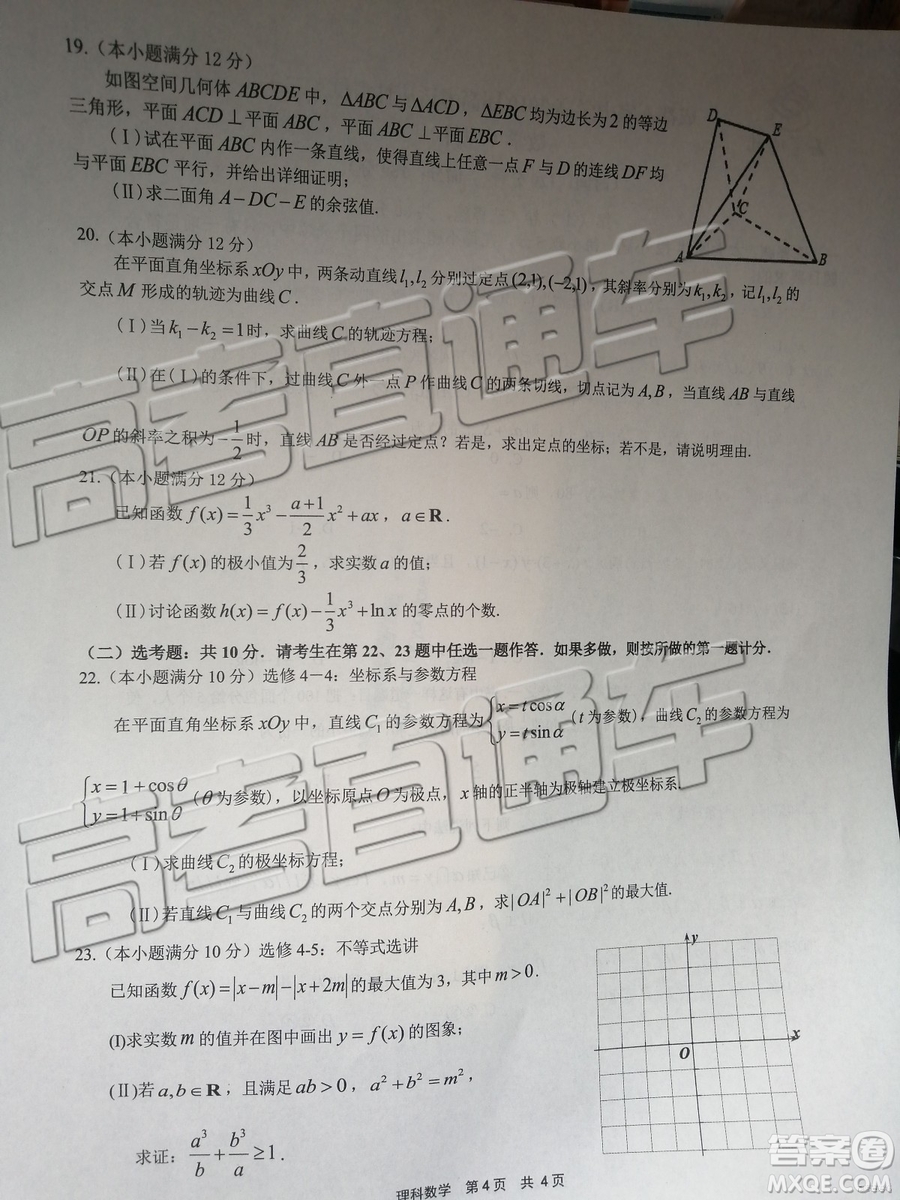 19.（本小题满分12分）
如图空间几何体 ABCDE 中，△ABC 与 △ACD，△EBC 均为边长为 2 的等边
三角形，平面 ACD ⊥ 平面 ABC，平面 ABC ⊥ 平面 EBC．
（Ⅰ）试在平面 ABC 内作一条直线，使得直线上任意一点 F 与 D 的连线 DF 均
与平面 EBC 平行，并给出详细证明；
（Ⅱ）求二面角 A－DC－E 的余弦值.
D
E
C
A
B
20.（本小题满分12分）
在平面直角坐标系 xOy 中，两条动直线 l₁,l₂ 分别过定点 (2,1),(−2,1)，其斜率分别为 k₁,k₂，记 l₁,l₂ 的
交点 M 形成的轨迹为曲线 C．
（Ⅰ）当 k₁−k₂=1 时，求曲线 C 的轨迹方程；
（Ⅱ）在（Ⅰ）的条件下，过曲线 C 外一点 P 作曲线 C 的两条切线，切点记为 A,B，当直线 AB 与直线
OP 的斜率之积为 −1/2 时，直线 AB 是否经过定点？若是，求出定点的坐标；若不是，请说明理由.
21.（本小题满分12分）
已知函数 f(x)=1/3 x³−(a+1)/2 x²+ax，a∈R．
（Ⅰ）若 f(x) 的极小值为 2/3，求实数 a 的值；
（Ⅱ）讨论函数 h(x)=f(x)−1/3 x³+ln x 的零点的个数.
（二）选考题：共10分．请考生在第22、23题中任选一题作答．如果多做，则按所做的第一题计分．
22.（本小题满分10分）选修4－4：坐标系与参数方程
在平面直角坐标系 xOy 中，直线 C₁ 的参数方程为 {x=t cosα y=t sinα（t 为参数），曲线 C₂ 的参数方程为
{x=1+cosθ y=1+sinθ（θ 为参数），以坐标原点 O 为极点，x 轴的正半轴为极轴建立极坐标系.
（Ⅰ）求曲线 C₂ 的极坐标方程；
（Ⅱ）若直线 C₁ 与曲线 C₂ 的两个交点分别为 A,B，求 |OA|²+|OB|² 的最大值.
23.（本小题满分10分）选修4-5：不等式选讲
已知函数 f(x)=|x−m|−|x+2m| 的最大值为 3，其中 m>0．
(Ⅰ)求实数 m 的值并在图中画出 y=f(x) 的图象；
(Ⅱ)若 a,b∈R，且满足 ab>0，a²+b²=m²，
求证：a³/b+b³/a≥1．
y
x
O
理科数学 第4页 共4页
高考直通车
高考直通车
答案圈
MXQE.COM